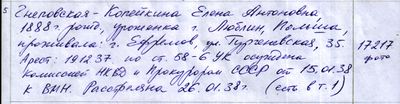 5 Гнеповская - Копейкина Елена Антоновна
1888 рожд, уроженка г. Люблин, Польша,
проживала: г. Ефремов, ул. Тургеневская, 35 17217
Арест: 191237 по ст. 58-6 УК осуждена фото
Комиссией НКВД и Прокурором СССР от 15.01.38
к ВМН. Расстреляна 26.01.38г. (есть в т. 1)